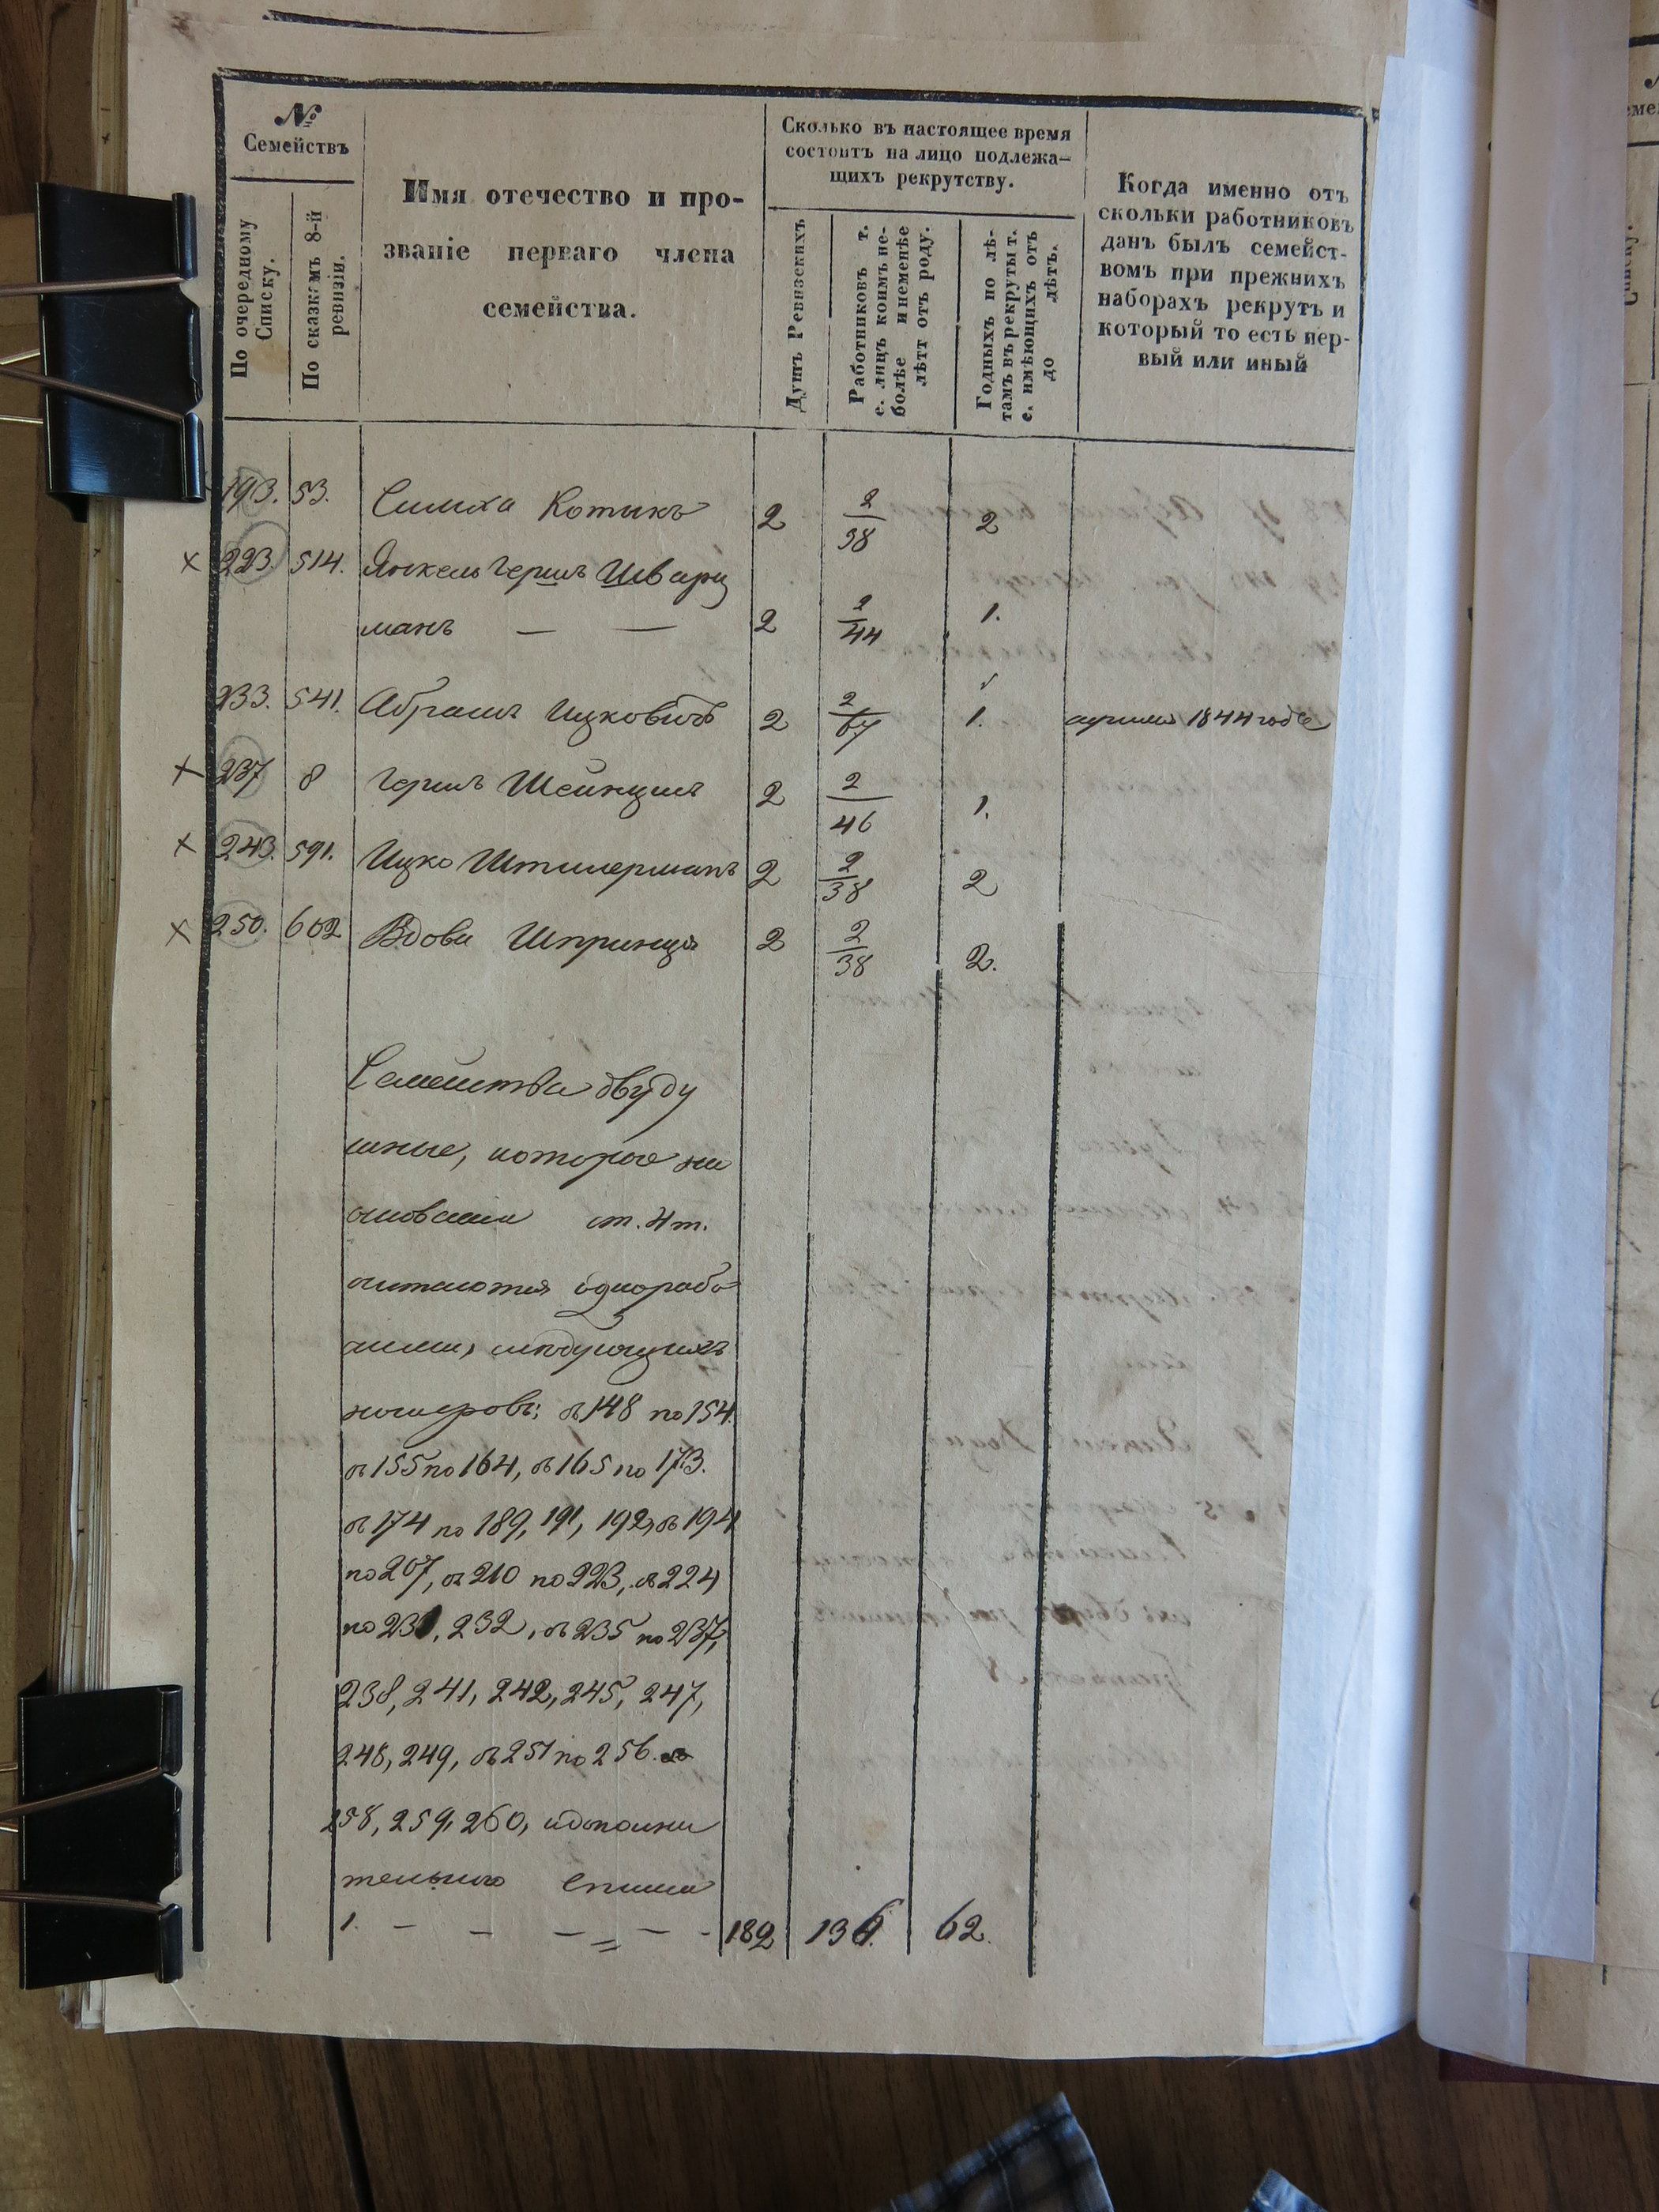 №
Семействъ
По очередному
Списку.
По сказкамъ 8-й
ревизіи.
Имя отечество и про-
званіе перваго члена
семейства.
Сколько въ настоящее время
состоитъ на лицо подлежа-
щихъ рекрутству.
Душъ Ревизскихъ
Работниковъ т.
е. лицъ коимъ не-
болѣе и неменѣе
лѣтт отъ роду.
Годныхъ по лѣ-
тамъ въ рекруты т.
е. имѣющихъ отъ
до лѣтъ.
Когда именно отъ
скольки работниковъ
данъ былъ семейст-
вомъ при прежнихъ
наборахъ рекрутъ и
который то есть пер-
вый или иный
193. 53. Симха Котикъ 2 2/38 2
× 223. 514. Янкель Гершъ Шварц
манъ — — 2 2/44 1.
233. 541. Абрамъ Ицковичъ 2 2/67 1. 1844 годе
× 237 8 Гершъ Шейнцисъ 2 2/46 1.
× 243. 591. Ицко Штилерманъ 2 2/38 2
× 250. 602 Вдова Шпринца 2 2/38 2.
Семейства двуду
шные, которое на
основании ст. 4 т.
считаются однорабо-
чими, следующихъ
номеровъ: съ 148 по 154.
съ 155 по 164, съ 165 по 173.
съ 174 по 189, 191, 192, съ 194
по 207, съ 210 по 223, съ 224
по 231, 232, съ 235 по 237,
238, 241, 242, 245, 247,
248, 249, съ 251 по 256.
258, 259, 260, и дополни
тельного списка
1. — — — — - 182 136. 62.